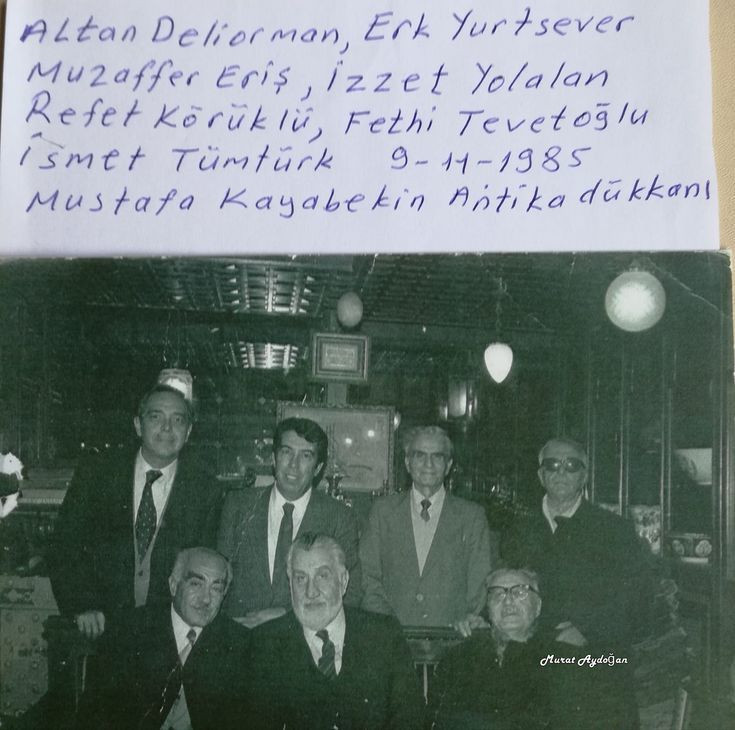 Altan Deliorman, Erk Yurtsever
Muzaffer Eriş, İzzet Yolalan
Refet Körüklü, Fethi Tevetoğlu
İsmet Tümtürk 9-11-1985
Mustafa Kayabekin Antika dükkanı
Murat Aydoğan